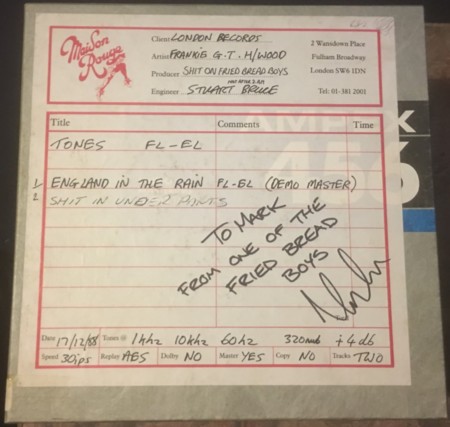 Maison Rouge
Client LONDON RECORDS
Artist FRANKIE G.T. H/WOOD
Producer SHIT ON FRIED BREAD BOYS
Engineer STUART BRUCE
2 Wansdown Place
Fulham Broadway
London SW6 1DN
Tel: 01-381 2001
AMPEX
456
Title Comments Time
TONES FL-EL
1 ENGLAND IN THE RAIN FL-EL (DEMO MASTER)
2 SHIT IN UNDER PANTS
TO MARK
FROM ONE OF THE
FRIED BREAD
BOYS
Date 17/12/88 Tones @ 1khz 10khz 60hz 320nwb +4db
Speed 30ips Replay AES Dolby NO Master YES Copy NO Tracks TWO